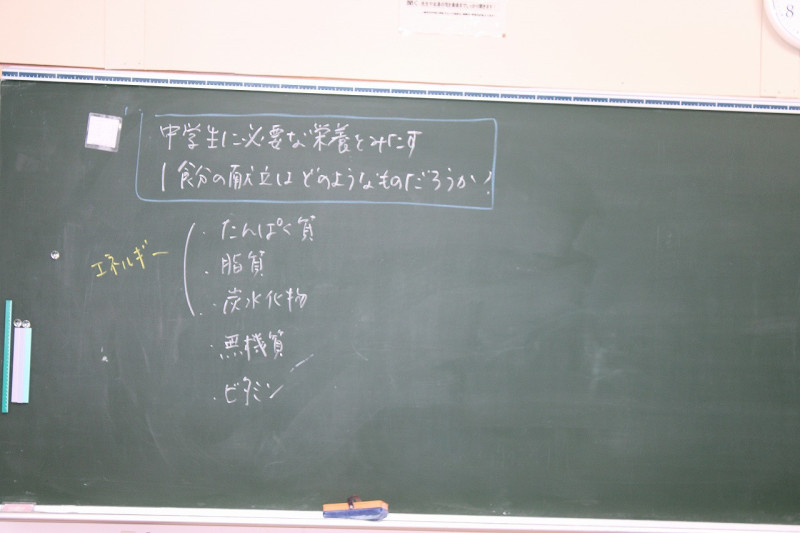 中学生に必要な栄養をみたす
1食分の献立はどのようなものだろうか?
エネルギー
・たんぱく質
・脂質
・炭水化物
・無機質
・ビタミン
8